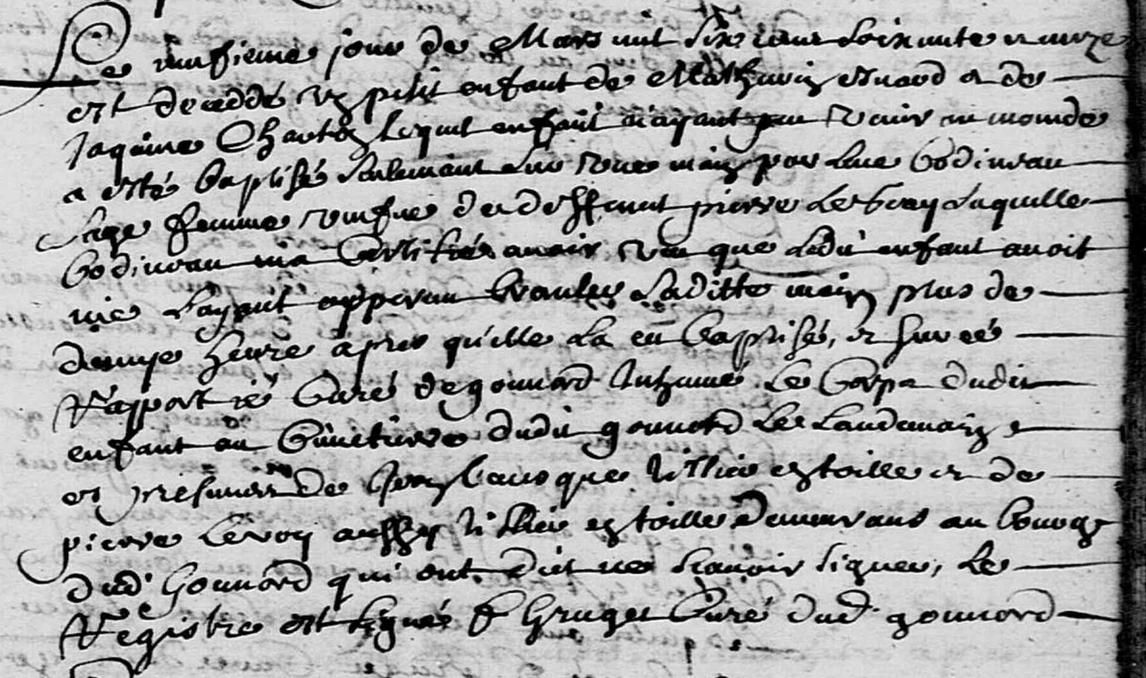 Le unsieme jour de Mars mil six cens soixante et unze
est decedde un petit enfant de Mathurin et de
Jaquine lequel enfant n'ayant peu venir au monde
a esté baptisé seulement sur une main par Lue Bodineau
sage femme veufve de deffunct pierre Le Roy Laquelle
Bodineau m'a certifié avoir veu que ledit enfant avoit
vie L'ayant apperceu branler Laditte main plus de
demye heure apres qu'elle La eu baptisé, et sur ce
Rapport ie Curé de gonnord Inhumé Le Corps dudit
enfant au Cimetiere dudit gonnord Le Landemain
en presence de que tissier en toille et de
pierre Leroy aussy tissier en toille Demeurans au bourg
dud' Gonnord qui ont dict ne scavoir signer, Le
Registre est signé f Gruget Curé dud. gonnord